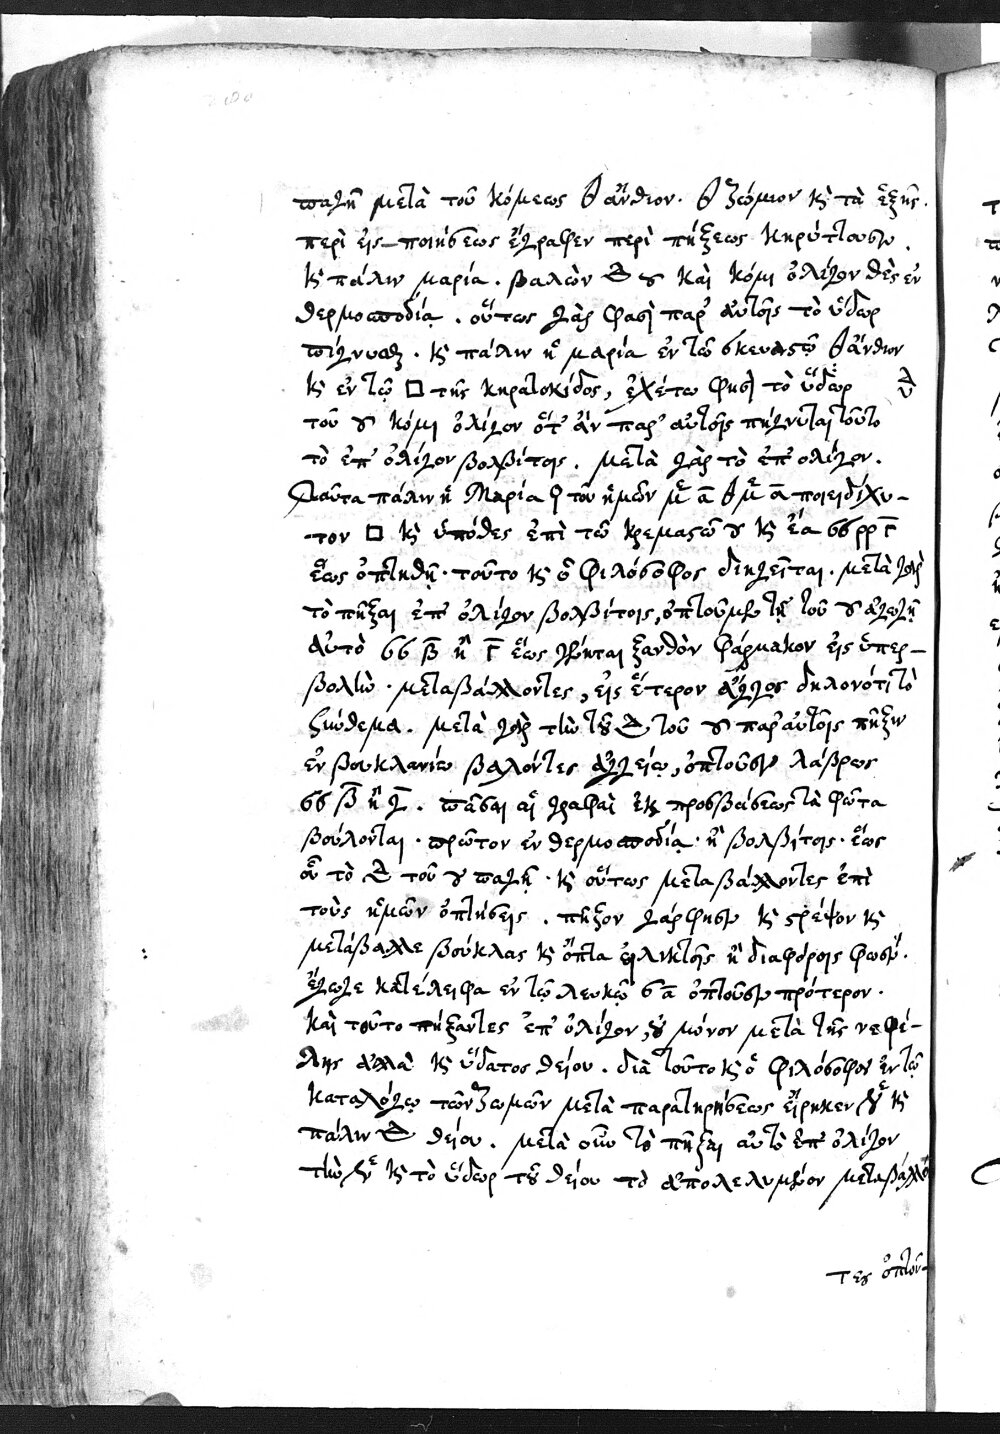 παγῆ μετὰ τοῦ κόμεως θ ἄνθιον. θ ζώμιον κ τὰ ἑξῆς.
περὶ εἰσ ποιήσεως ἔγραφεν περὶ πήξεως κηρύττουσιν.
κ πάλιν μαρία. βαλὼν καὶ κόμι ὀλίγον θὲς ἐν
θερμοσποδιᾷ. οὕτως γάρ φασὶ παρ' αὐτοῖς τὸ ὕδωρ
πίγνυσθαι. κ πάλιν ἡ μαρία ἐν τῶ σκευαστῷ θ ἄνθιον
κ ἐν τῷ □ τῆς κηροτακίδος, ἐχέτω φησὶ τὸ ὕδωρ
τοῦ κόμι ὀλίγον ὅτ' ἂν παρ' αὐτοῖς πήγνυται τοῦτο
τὸ ἐπ' ὀλίγον βολβίτοις. μετὰ γὰρ τὸ ἐπ' ὀλίγον.
Ταῦτα πάλιν ἡ Μαρία τῶν ἡμῶν α α ποιεῖ δίχυ-
τον □ κ ὑπόθες ἐπὶ τῶ κρεμαστῶ κ ἔα γ
ἕως ὀπτηθῆ. τοῦτο κ ὁ Φιλόσοφος διηγεῖται. μετὰ γὰρ
τὸ πῆξαι ἐπ' ὀλίγον βολβίτοις, ὀπτοῦμεν τῇ τοῦ ἀγωγῇ
αὐτὸ β ἢ γ ἕως γένηται ξανθὸν φάρμακον εἰς ὑπερ-
βολὴν. μεταβάλλοντες, εἰς ἕτερον ἄγγος δηλονότι τὸ
σύνθεμα. μετὰ γὰρ τὴν τοῦ τοῦ παρ' αὐτοῖς πῆξιν
ἐν βουκλανίω βαλόντες ἀγγείῳ, ὀπτοῦσιν λάβρως
β ἢ γ. πᾶσαι αἱ γραφαὶ ἐκ προσβάσεως τὰ φῶτα
βούλονται. πρῶτον ἐν θερμοσποδιᾷ. ἢ βολβίτοις. ἕως
οὗ τὸ τοῦ παγῆ. κ οὕτως μεταβάλλοντες ἐπὶ
τοὺς ἡμῶν ὀπτήσεις. πῆξον γάρ φησιν κ στρέψον κ
μετάβαλλε βούκλας κ ὄπτα εἰλικτοῖς ἢ διαφόροις φωσίν.
ἔγωγε κατέλειφα ἐν τῷ λευκῷ α ὀπτοῦσιν πρότερον.
καὶ τοῦτο πήξαντες ἐπ' ὀλίγον, οὐ μόνον μετὰ τῆς νεφέ-
λης ἀλλὰ κ ὕδατος θείου. διὰ τοῦτο κ ὁ φιλόσοφος ἐν τῷ
καταλόγῳ τῶν ζωμῶν μετὰ παρατηρήσεως εἴρηκεν κ
πάλιν θείου. μετὰ οὖν τὸ πῆξαι αὐτὸ ἐπ' ὀλίγον
τὴν κ τὸ ὕδωρ τοῦ θείου τὸ ἀπολελυμένον μεταβάλλον
τες ὀπτοῦ-